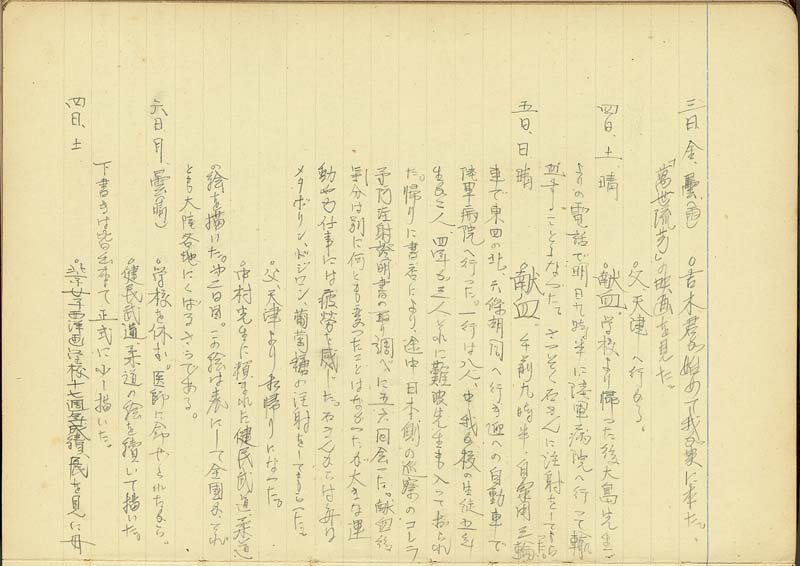 三日、金、曇、 ○吉木君が始めて我が家に来た。
「萬世流芳」の映画を見た。
○父、天津へ行かる。
四日、土 晴 ○献血。学校より帰った後大島先生
よりの電話で明日九時半に陸軍病院へ行って輸
血することとなった。さっそく石さんに注射をしてもらった。
五日、日 晴 ○献血。午前九時半、自家用三輪
車で東四の北、六條胡同へ行き迎への自動車で
陸軍病院へ行った。一行は八人、中我が校の生徒五年
生二人、四年生三人それに難波先生も入っておられ
た。帰りに書 により、途中日本側の巡察のコレラ
予防注射証明書の取り調べに五六回会った。献血後、
気分は別に何とも変ったことはなかったが大きな運
動や力仕事には疲労を感じた。石さんからは毎日
メタボリン、ドジロン、葡萄糖の注射をしてもらった。
○父、天津よりお帰りになった。
○中村先生に頼まれた健民武道柔道
の絵を描いた。 二日目。この絵は表にして全国 それ
とも大陸各地にくばるさうである。
六日 月、曇(晴) ○学校を休む。医師に命ぜられたから。
○健民武道柔道の絵を続いて描いた。
下書きは皆出来て正式に少し描いた。
四日、土 ○北京女子西洋画学校十七周年成績展を見に母